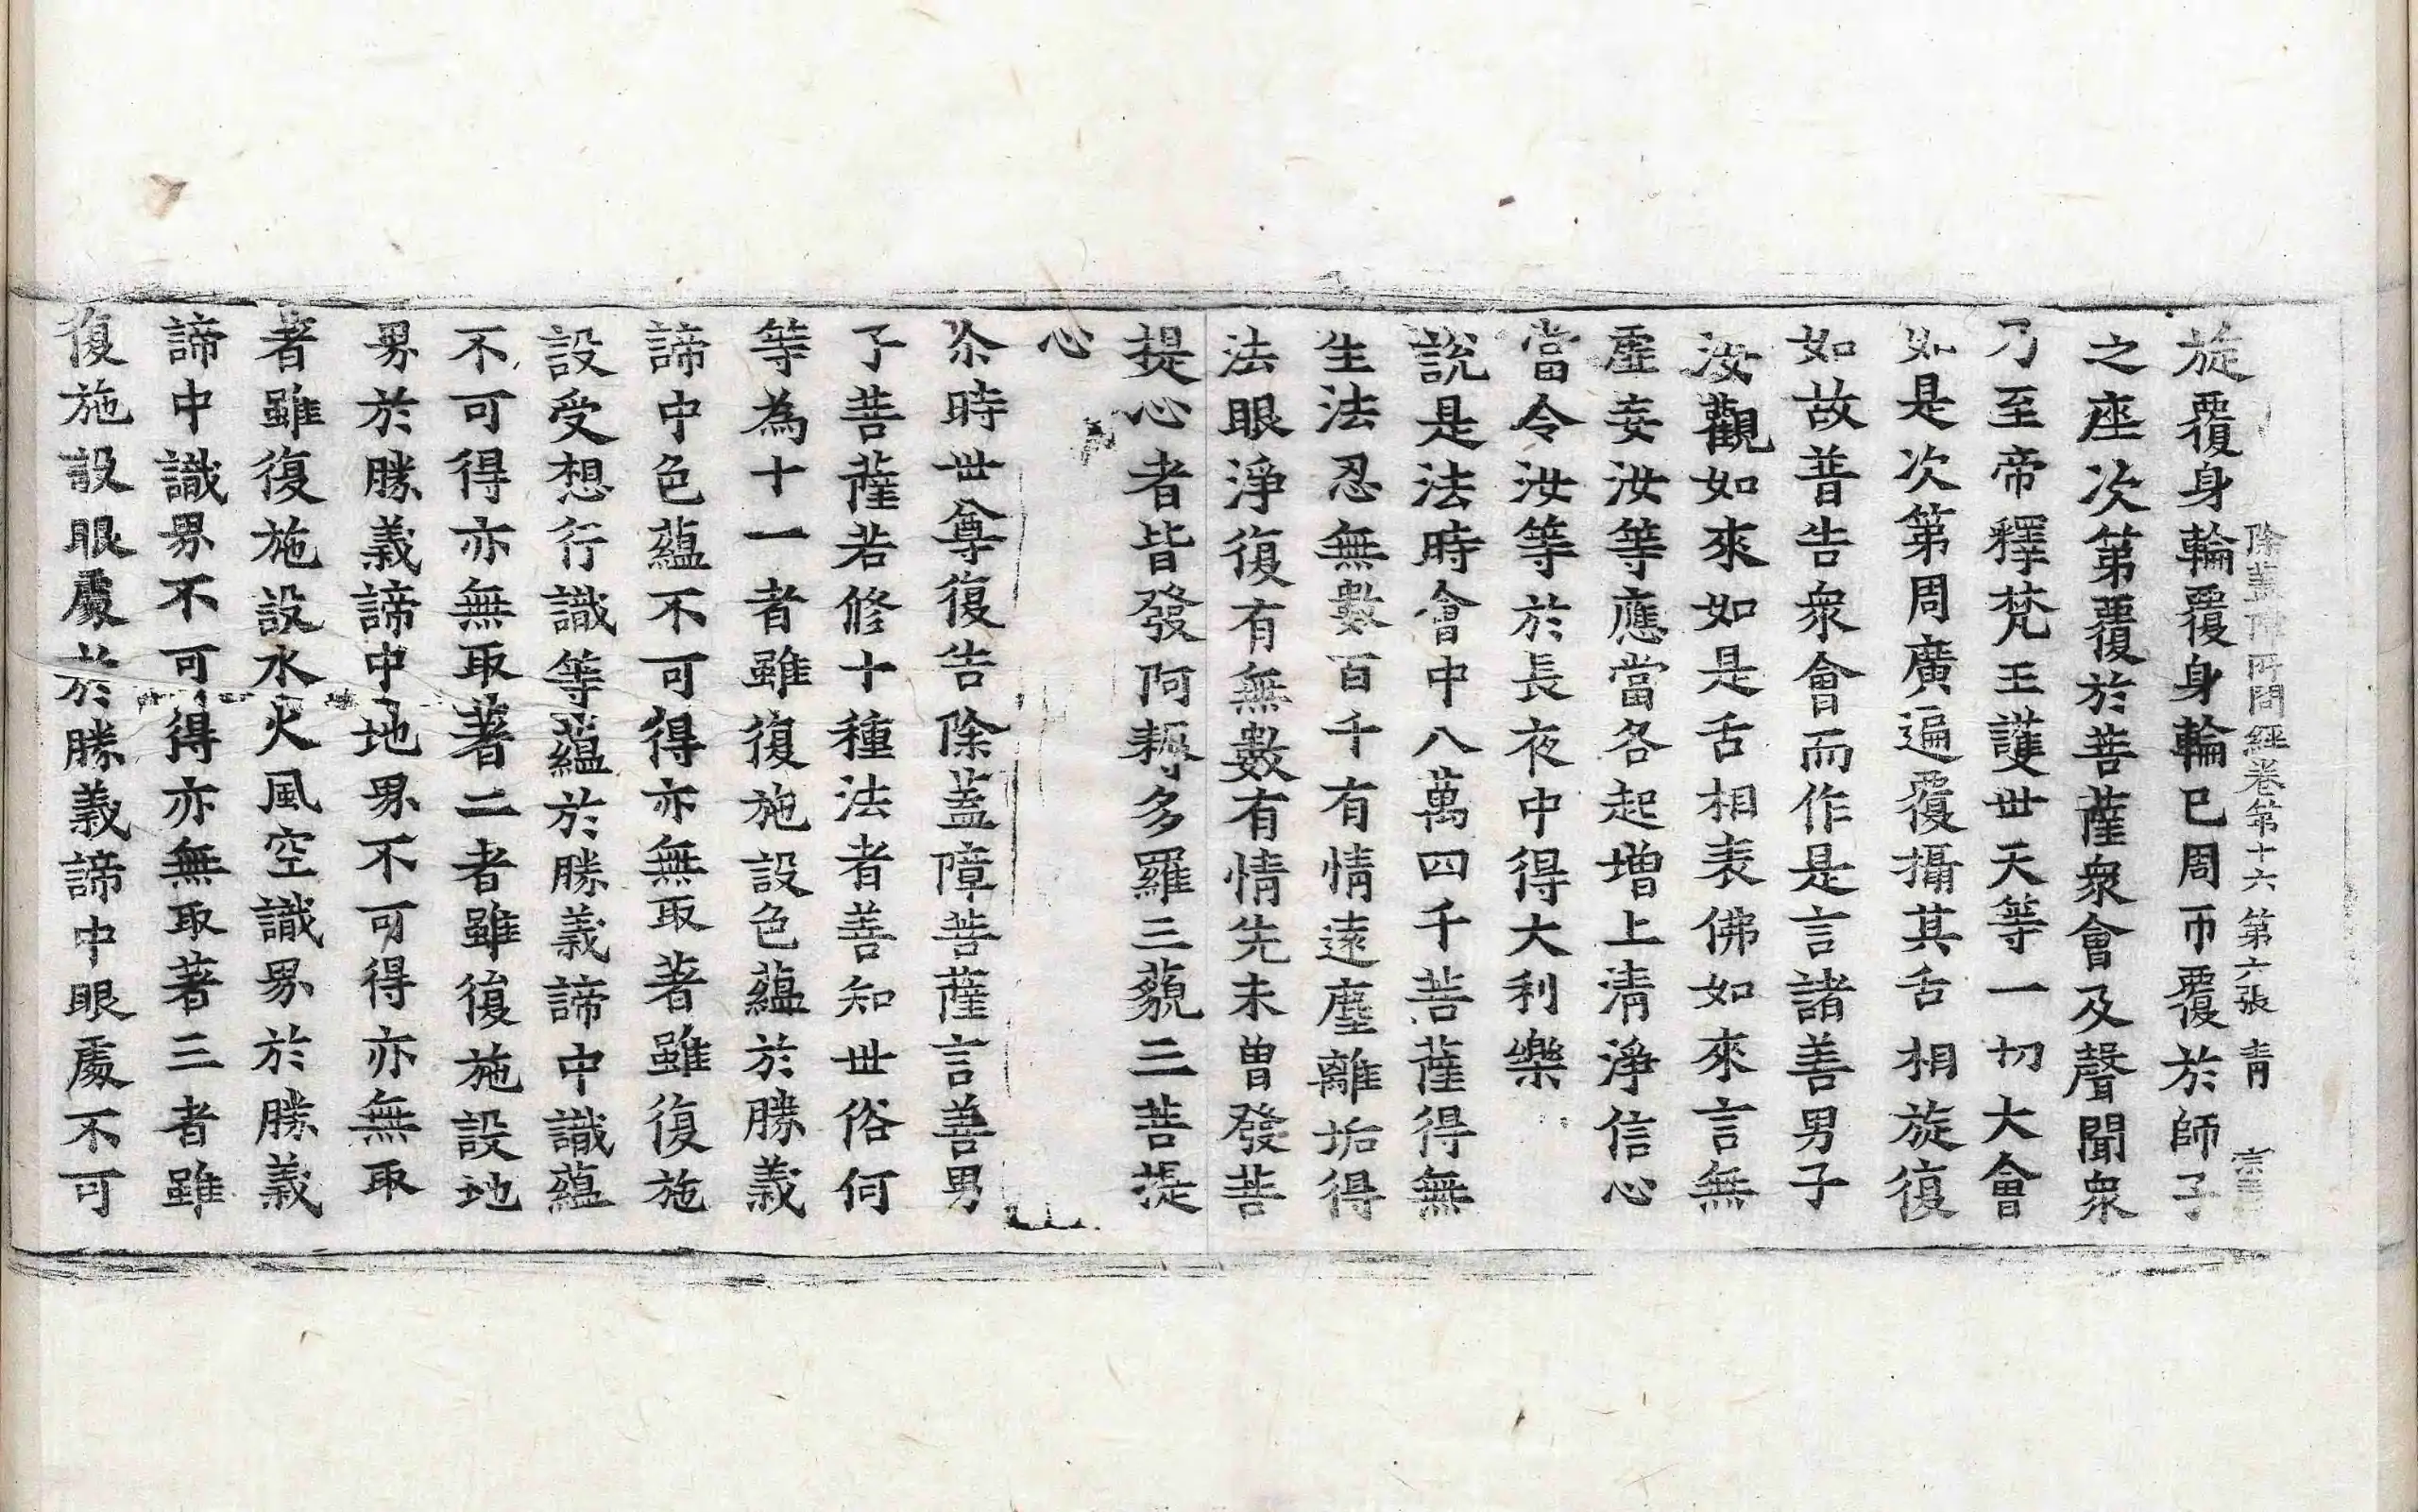 除蓋障所問經卷第十六 第六張 青 宗
旋覆身輪覆身輪已周帀覆於師子
之座次第覆於菩薩衆會及聲聞衆
乃至帝釋梵王護世天等一切大會
如是次第周廣遍覆攝其舌相旋復
如故普告衆會而作是言諸善男子
汝觀如來如是舌相表佛如來言無
虛妄汝等應當各起增上清淨信心
當令汝等於長夜中得大利樂
說是法時會中八萬四千菩薩得無
生法忍無數百千有情遠塵離垢得
法眼淨復有無數有情先未曾發菩
提心者皆發阿耨多羅三藐三菩提
心
尒時世尊復告除蓋障菩薩言善男
子菩薩若修十種法者善知世俗何
等為十一者雖復施設色蘊於勝義
諦中色蘊不可得亦無取著雖復施
設受想行識等蘊於勝義諦中識蘊
不可得亦無取著二者雖復施設地
界於勝義諦中地界不可得亦無取
著雖復施設水火風空識界於勝義
諦中識界不可得亦無取著三者雖
復施設眼處於勝義諦中眼處不可